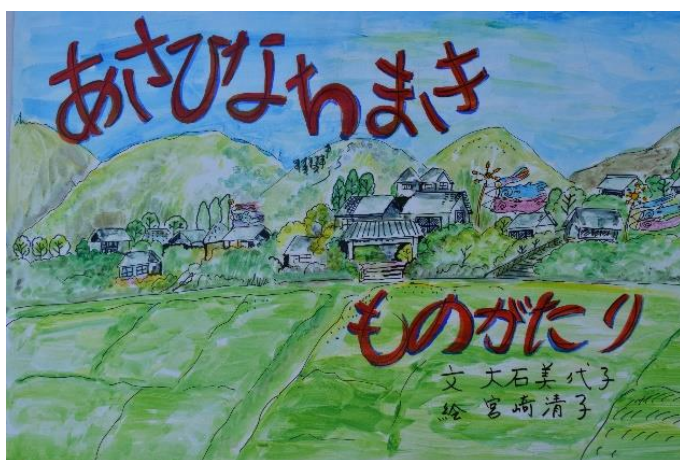 あさひなちまき
ものがたり
文 大石美代子
絵 宮崎清子